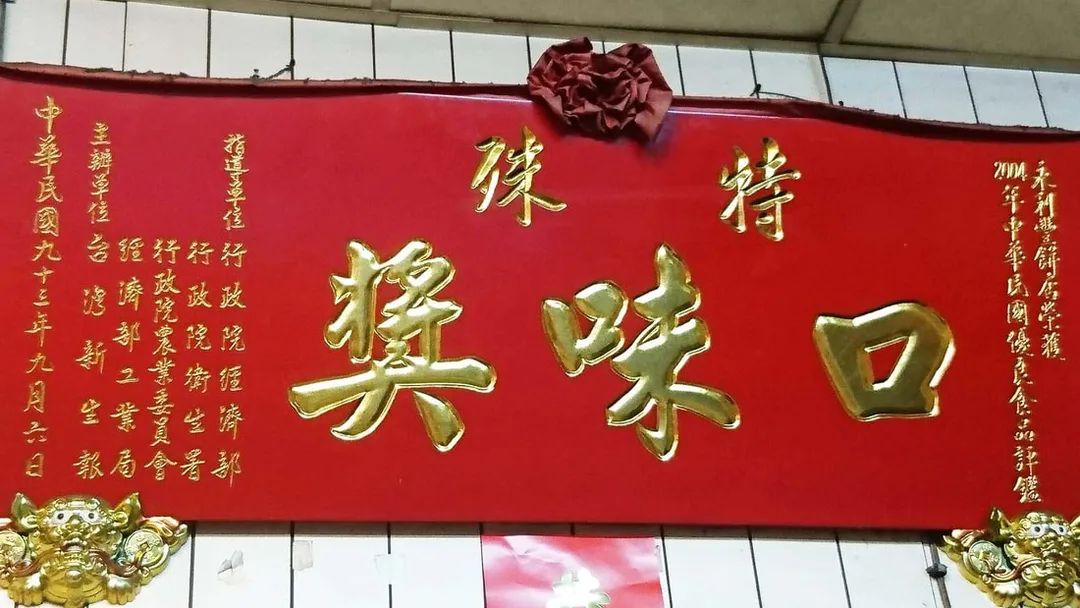 永利豐餅店榮獲
2004年中華民國優良食品評鑑
特殊
口味獎
指導單位 行政院經濟部
行政院衛生署
行政院農業委員會
經濟部工業局
主辦單位 台灣新生報
中華民國九十三年九月六日